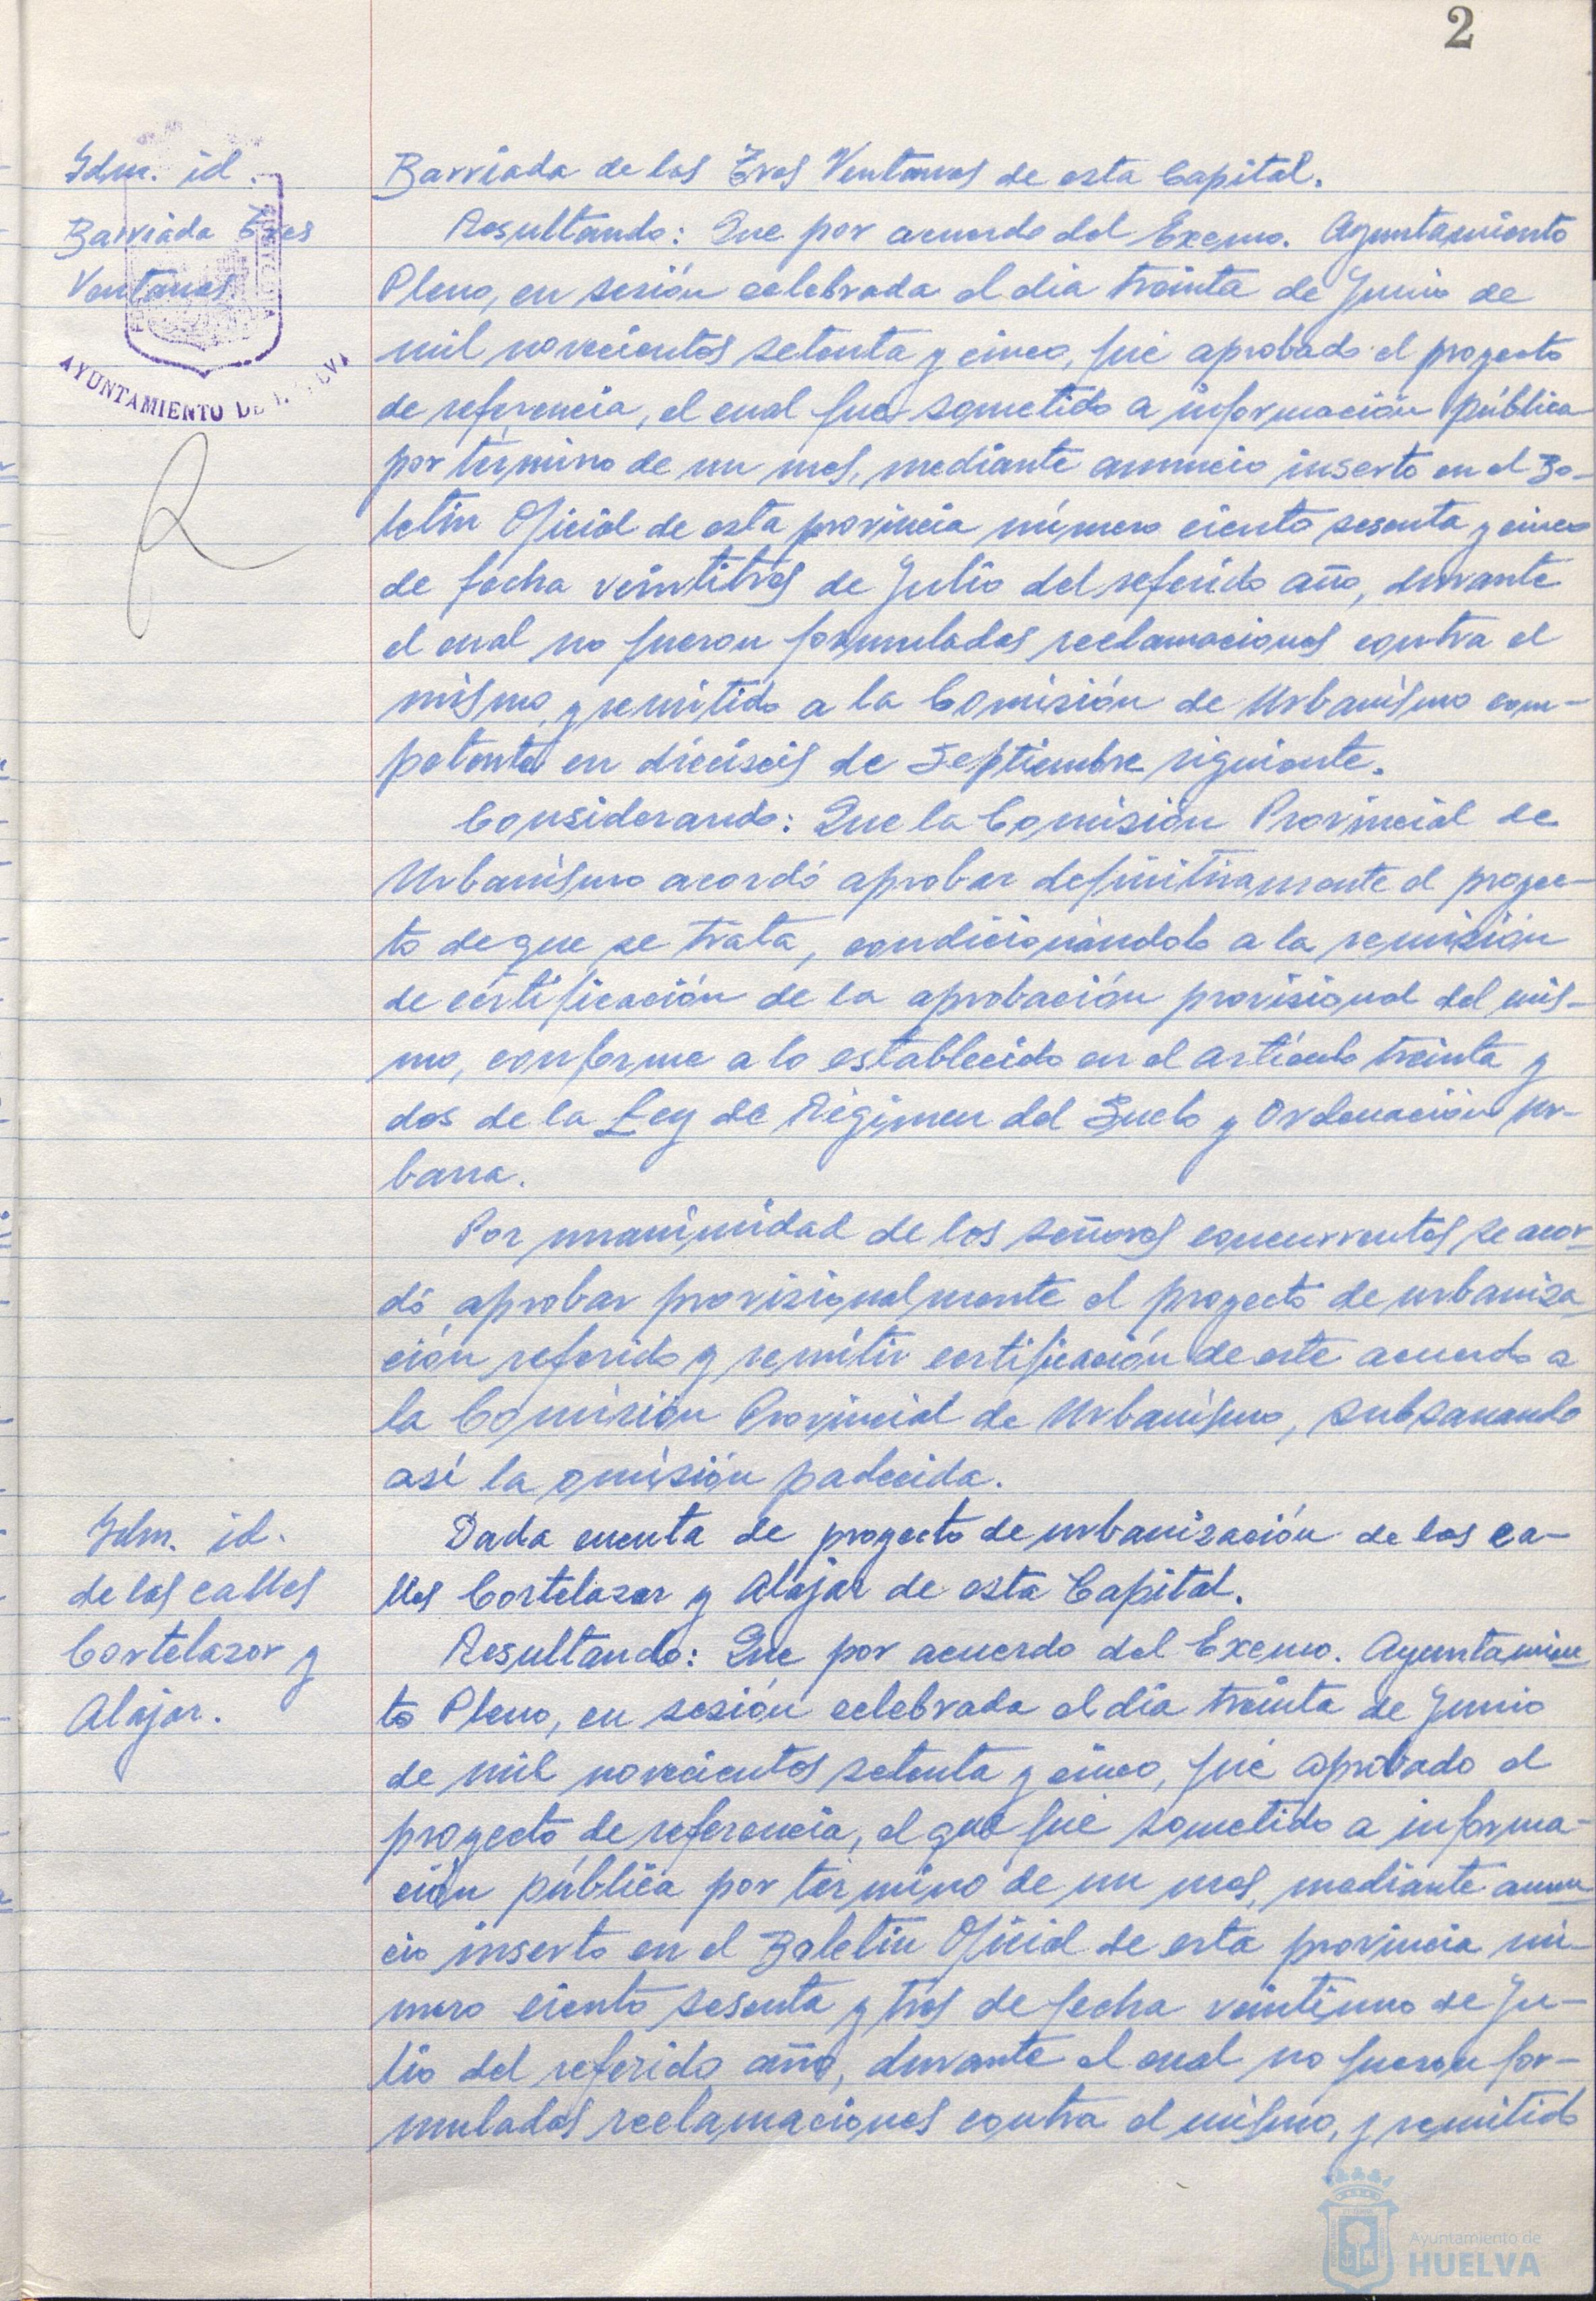 2
Idm. id.
Barriada Tres
Ventanas
AYUNTAMIENTO DE
Barriada de las Tres Ventanas de esta Capital.
Resultando: Que por acuerdo del Excmo. Ayuntamiento
Pleno, en sesión celebrada el dia treinta de Junio de
mil novecientos setenta y cinco, fué aprobado el proyecto
de referencia, el cual fue sometido a información pública
por término de un mes, mediante anuncio inserto en el Bo-
letin Oficial de esta provincia número ciento sesenta y cinco
de fecha veintitrés de Julio del referido año, durante
el cual no fueron formuladas reclamaciones contra el
mismo, y remitido a la Comisión de Urbanismo com-
petente en dieciseis de Septiembre siguiente.
Considerando: Que la Comisión Provincial de
Urbanismo acordó aprobar definitivamente el proyec-
to de que se trata, condicionándolo a la remisión
de certificación de la aprobación provisional del mis-
mo, conforme a lo establecido en el artículo treinta y
dos de la Ley de Régimen del Suelo y Ordenación Ur-
bana.
Por unanimidad de los señores concurrentes se acor-
dó aprobar provisionalmente el proyecto de urbaniza
ción referido y remitir certificación de este acuerdo a
la Comisión Provincial de Urbanismo, subsanando
así la omisión padecida.
Idm. id.
de las calles
Cortelazor y
Alajar.
Dada cuenta de proyecto de urbanización de las ca-
lles Cortelazor y Alajar de esta Capital.
Resultando: Que por acuerdo del Excmo. Ayuntamien
to Pleno, en sesión celebrada el día treinta de Junio
de mil novecientos setenta y cinco, fué aprobado el
proyecto de referencia, el que fué sometido a informa-
ción pública por término de un mes, mediante anun
cio inserto en el Boletin Oficial de esta provincia nú-
mero ciento sesenta y tres de fecha veintiuno de Ju-
lio del referido año, durante el cual no fueron for-
muladas reclamaciones contra el mismo, y remitido
Ayuntamiento de
HUELVA